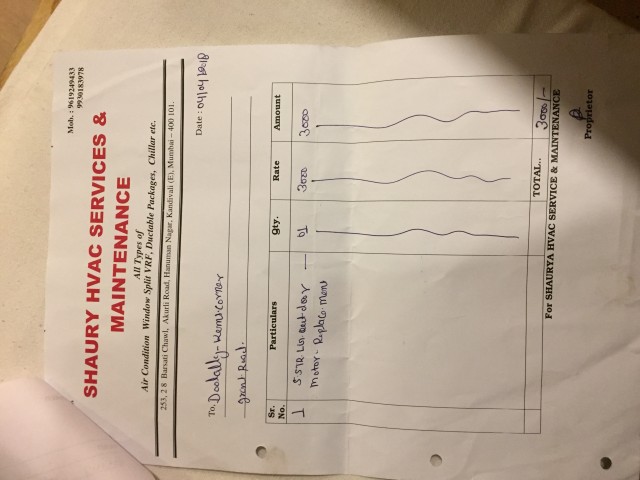 Mob. : 9619249433
9930183978
SHAURY HVAC SERVICES &
MAINTENANCE
All Types of
Air Condition Window Split VRF, Ductable Packages, Chillar etc.
253, 2 8 Barsati Chawl, Akurli Road, Hanuman Nagar, Kandivali (E), Mumbai – 400 101.
Date : 04/04/2018
To, Doolally - Kemscorner
grant Road.
Sr. No. Particulars Qty. Rate Amount
1 outdoor — 01 3000 3000
motor - Replacement
TOTAL.. 3000/-
For SHAURYA HVAC SERVICE & MAINTENANCE
Proprietor